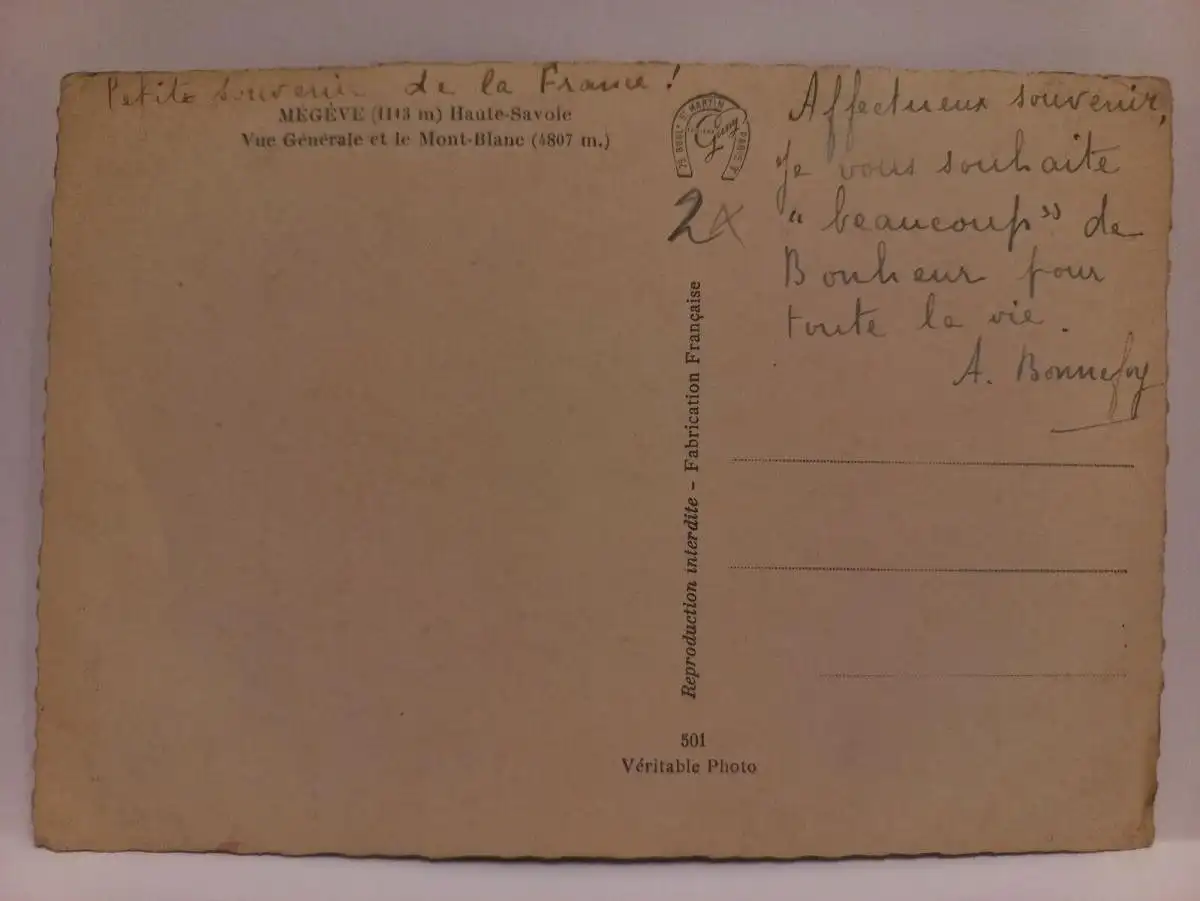 Petite souvenir de la France !
MEGÈVE (1113 m) Haute-Savoie
Vue Générale et le Mont-Blanc (4807 m.)
75 BOULᵈ Sᵗ MARTIN PARIS
2x
Affectueux souvenir,
Je vous souhaite
"beaucoup" de
Bonheur pour
toute la vie.
A. Bonnefoy
Reproduction interdite - Fabrication Française
501
Véritable Photo